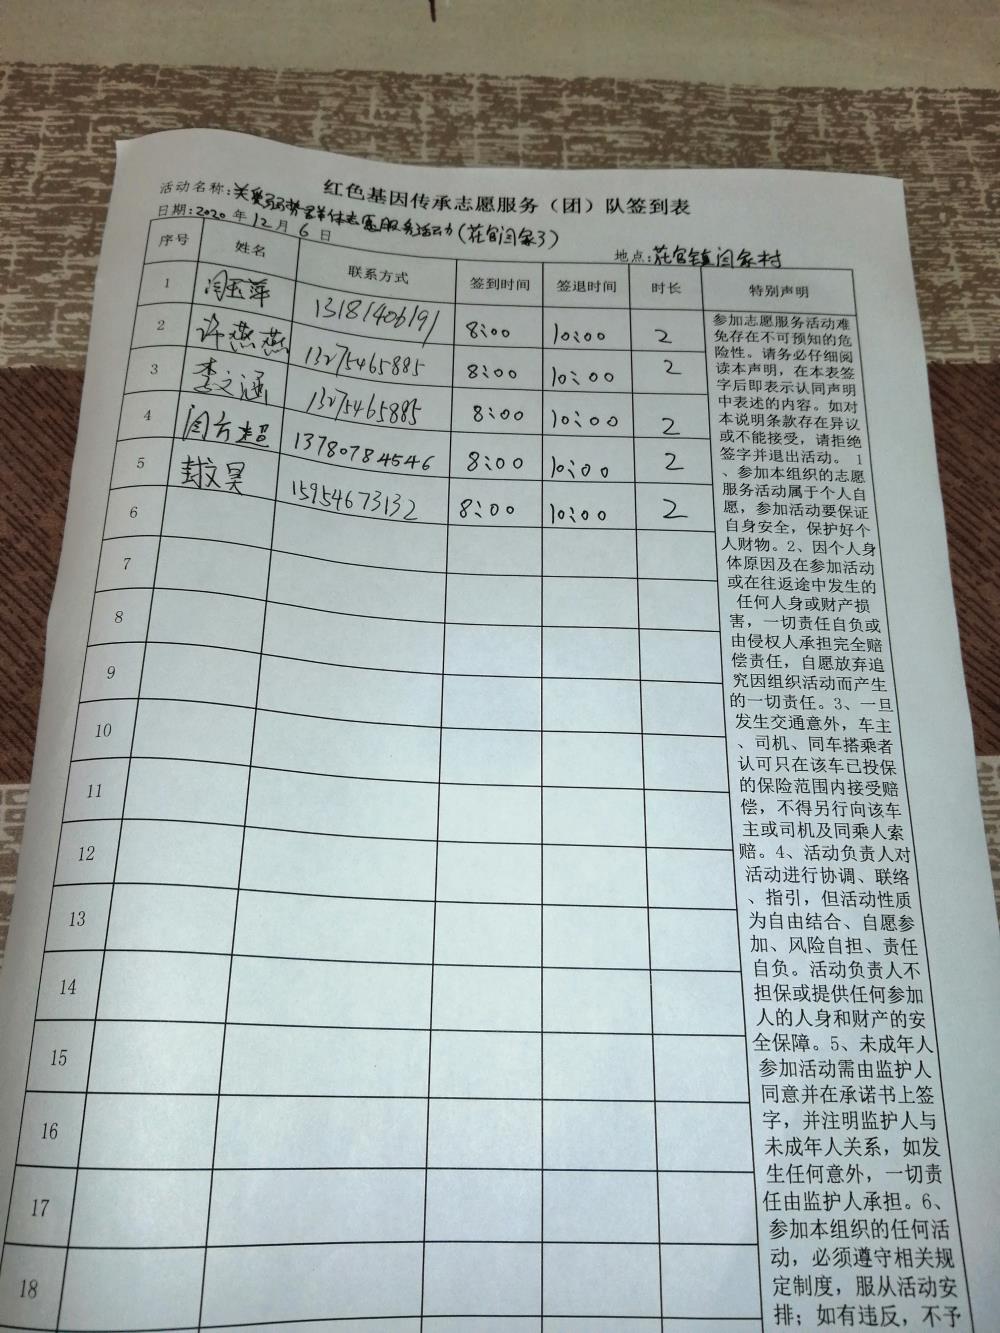 红色基因传承志愿服务（团）队签到表
活动名称:关爱弱势群体志愿服务活动(花官闫家3)
日期:2020年12月6日
地点:花官镇闫家村
序号 姓名 联系方式 签到时间 签退时间 时长 特别声明
1 闫玉萍 13181406191 8:00 10:00 2
2 许燕燕 13275465885 8:00 10:00 2
3 李文涵 13275465885 8:00 10:00 2
4 闫方超 13780784546 8:00 10:00 2
5 封文昊 15954673132 8:00 10:00 2
6
7
8
9
10
11
12
13
14
15
16
17
18
参加志愿服务活动难
免存在不可预知的危
险性。请务必仔细阅
读本声明，在本表签
字后即表示认同声明
中表述的内容。如对
本说明条款存在异议
或不能接受，请拒绝
签字并退出活动。 1
、参加本组织的志愿
服务活动属于个人自
愿，参加活动要保证
自身安全，保护好个
人财物。2、因个人身
体原因及在参加活动
或在往返途中发生的
任何人身或财产损
害，一切责任自负或
由侵权人承担完全赔
偿责任，自愿放弃追
究因组织活动而产生
的一切责任。3、一旦
发生交通意外，车主
、司机、同车搭乘者
认可只在该车已投保
的保险范围内接受赔
偿，不得另行向该车
主或司机及同乘人索
赔。4、活动负责人对
活动进行协调、联络
、指引，但活动性质
为自由结合、自愿参
加、风险自担、责任
自负。活动负责人不
担保或提供任何参加
人的人身和财产的安
全保障。5、未成年人
参加活动需由监护人
同意并在承诺书上签
字，并注明监护人与
未成年人关系，如发
生任何意外，一切责
任由监护人承担。6、
参加本组织的任何活
动，必须遵守相关规
定制度，服从活动安
排；如有违反，不予